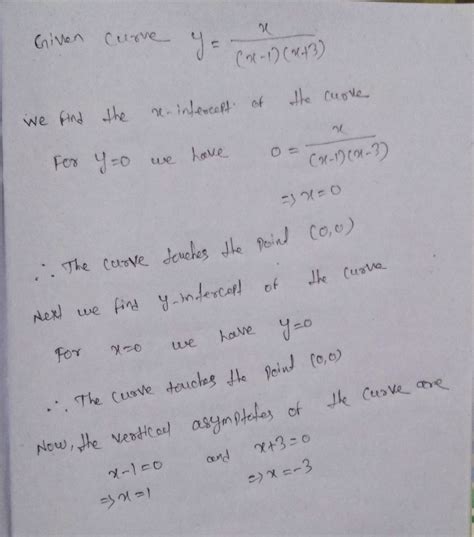 Given curve y = x / (x-1)(x+3)
we find the x-intercept of the curve
For y=0 we have 0 = x / (x-1)(x-3)
=> x=0
∴ The curve touches the point (0,0)
Next we find y-intercept of the curve
For x=0 we have y=0
∴ The curve touches the point (0,0)
Now, the vertical asymptotes of the curve are
x-1=0 and x+3=0
=> x=1 => x=-3